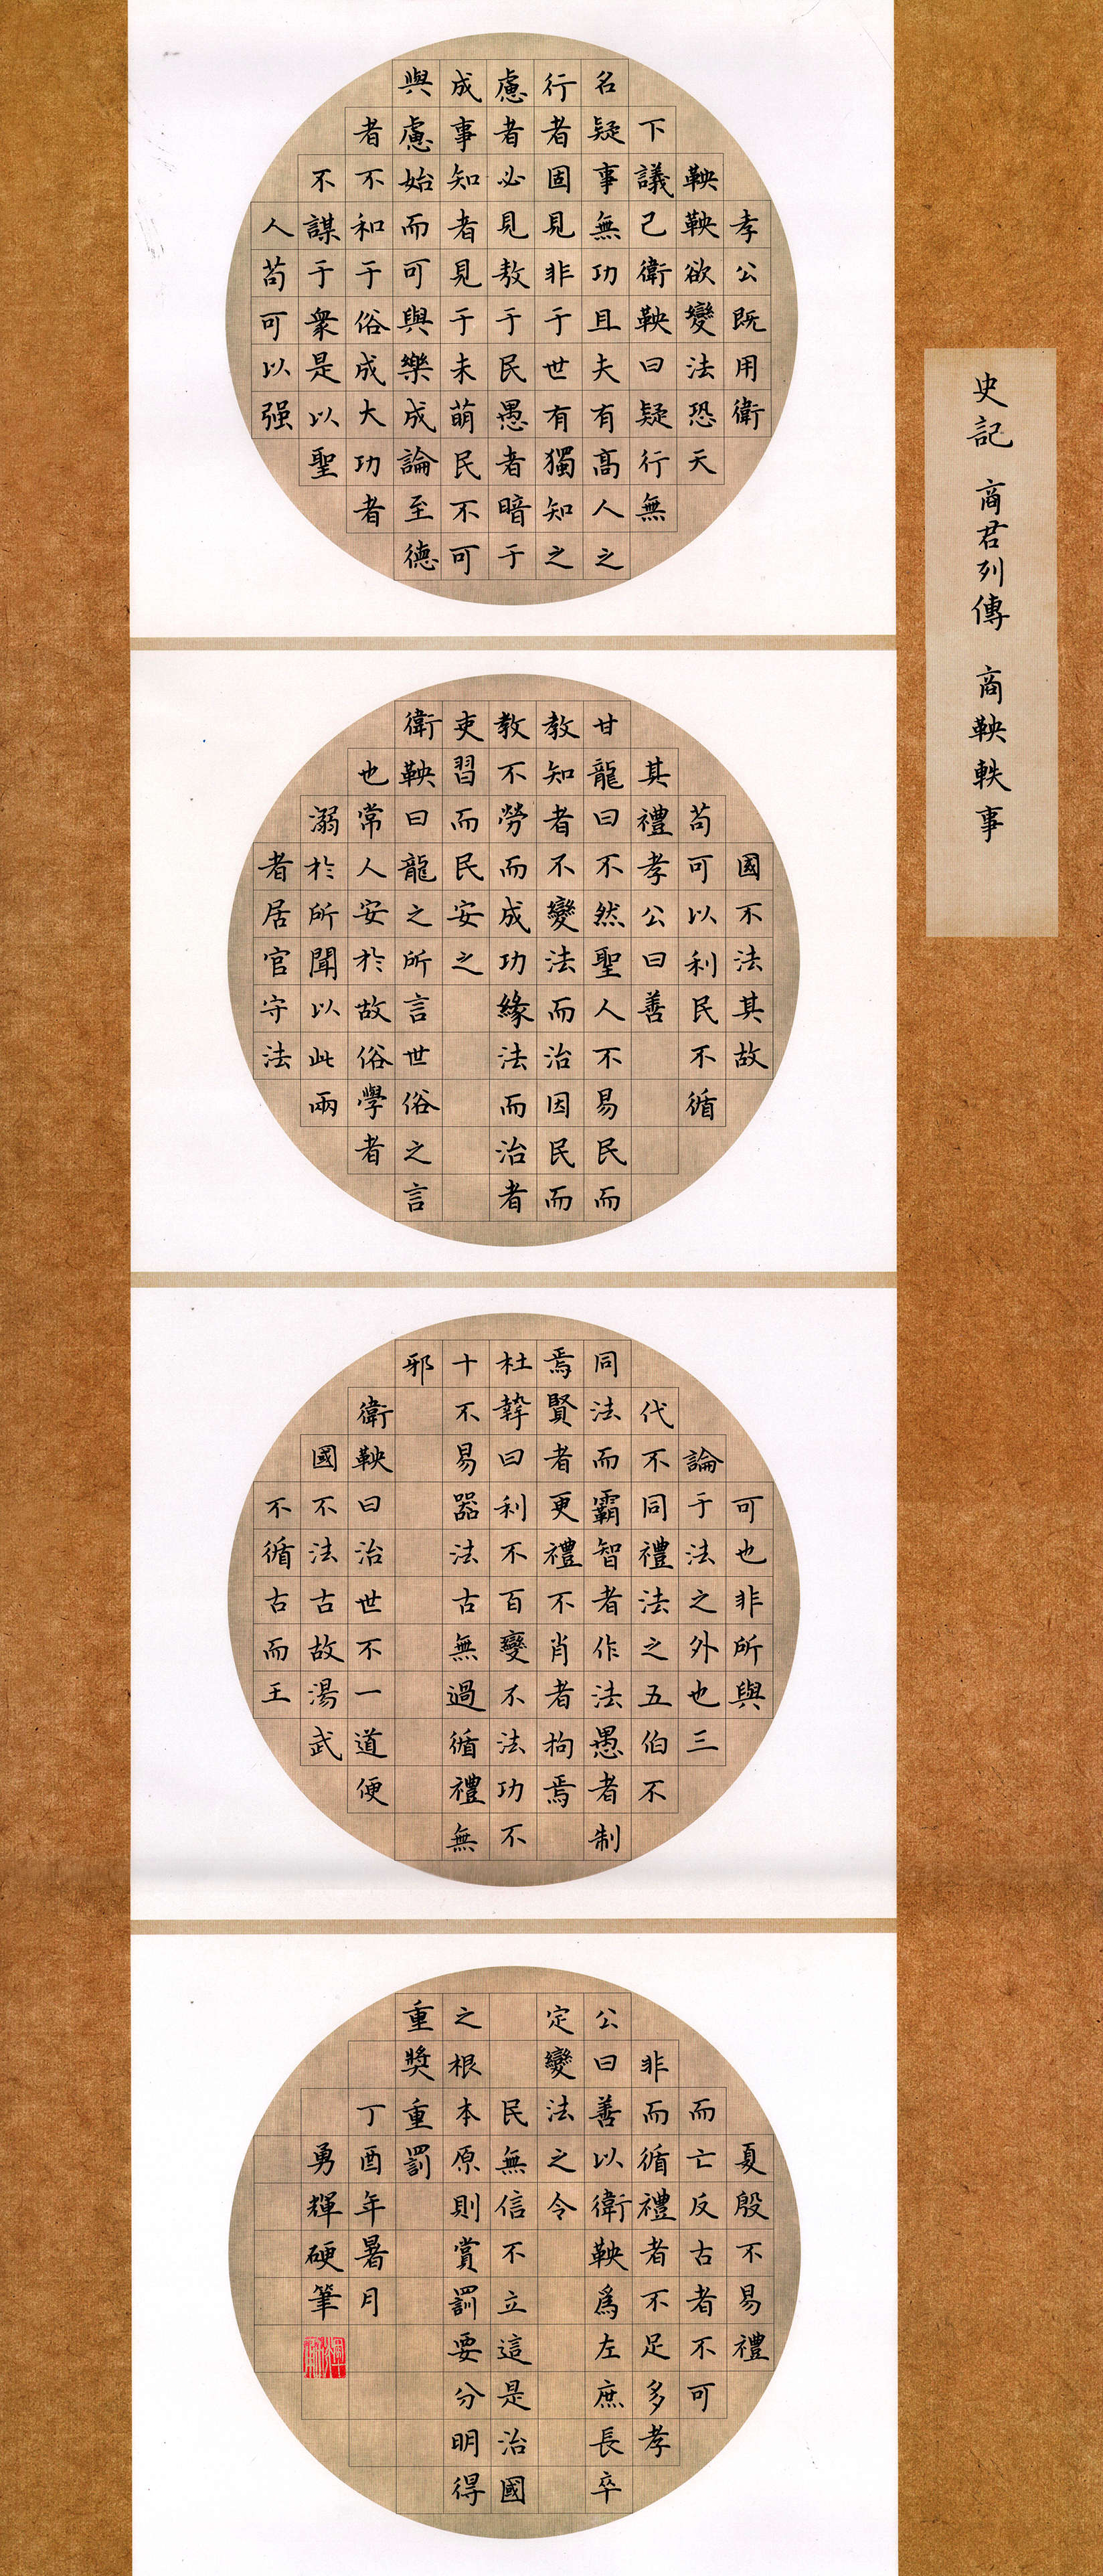 史記 商君列傳 商鞅軼事
孝公既用衛
鞅鞅欲變法恐天
下議己衛鞅曰疑行無
名疑事無功且夫有高人之
行者固見非于世有獨知之
慮者必見敖于民愚者暗于
成事知者見于未萌民不可
與慮始而可與樂成論至德
者不和于俗成大功者
不謀于衆是以聖
人苟可以强
國不法其故
苟可以利民不循
其禮孝公曰善
甘龍曰不然聖人不易民而
教知者不變法而治因民而
教不勞而成功緣法而治者
吏習而民安之
衛鞅曰龍之所言世俗之言
也常人安於故俗學者
溺於所聞以此兩
者居官守法
可也非所與
論于法之外也三
代不同禮法之五伯不
同法而霸智者作法愚者制
焉賢者更禮不肖者拘焉
杜摯曰利不百變不法功不
十不易器法古無過循禮無
邪
衛鞅曰治世不一道便
國不法古故湯武
不循古而王
夏殷不易禮
而亡反古者不可
非而循禮者不足多孝
公曰善以衛鞅爲左庶長卒
定變法之令
民無信不立這是治國
之根本原則賞罰要分明得
重獎重罰
丁酉年暑月
勇輝硬筆